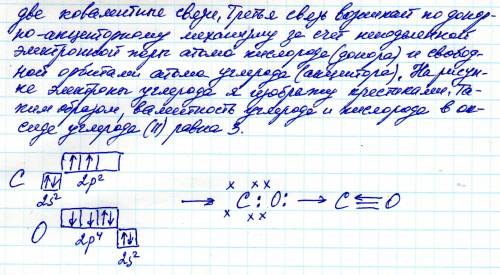 две ковалентные связи. Третья связь возникает по донор-
но-акцепторному механизму за счет неподеленной
электронной пары атома кислорода (донора) и свобод-
ной орбитали атома углерода (акцептора). На рисун-
ке электроны углерода я изображу крестиками. Та-
ким образом, валентность углерода и кислорода в ок-
сиде углерода (II) равна 3.
C ↑ ↑ 2p²
↑↓ 2s²
O ↓ ↓ ↑↓ 2p⁴
↑↓ 2s²
→ C : O : → C O